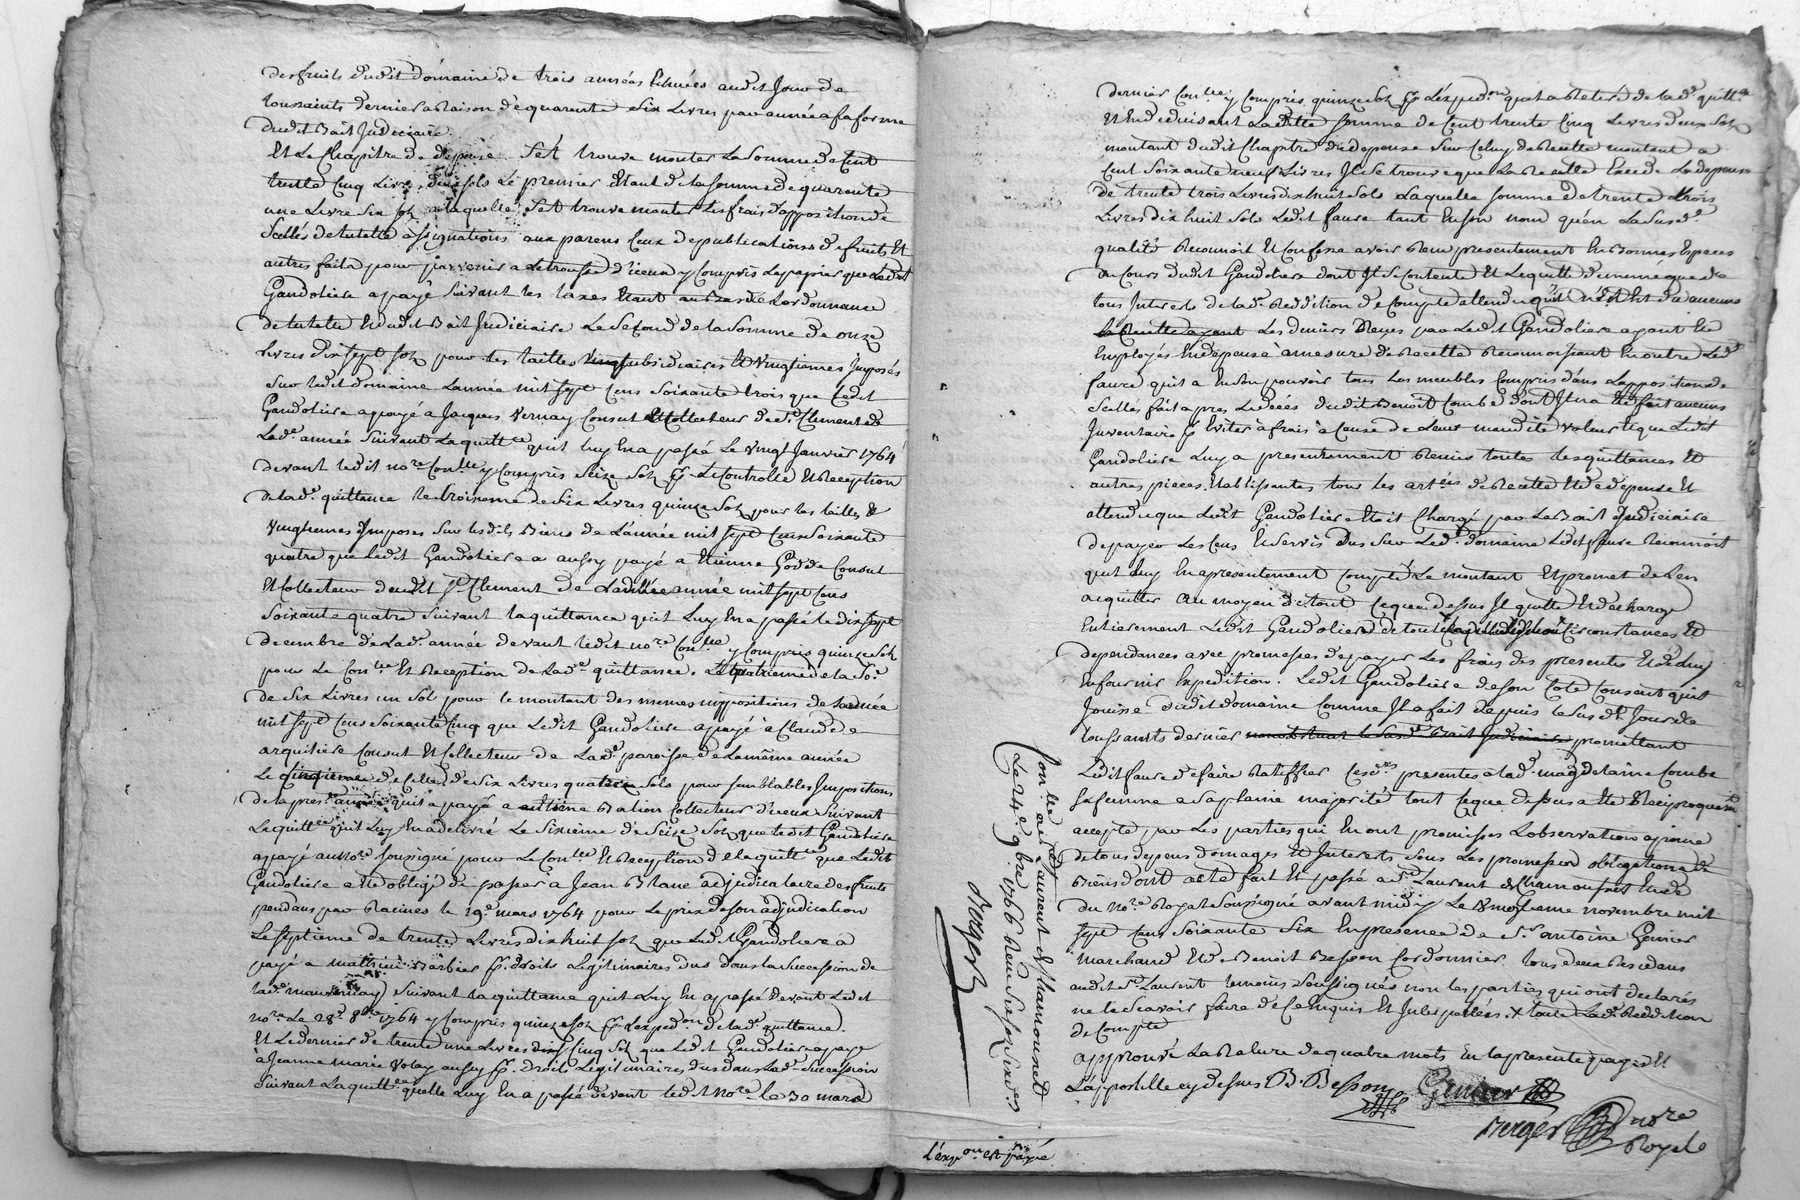 des fruits dudit domaine de trois années échuées audit Jour de
toussaints dernier a Raison de quarente six Livres par année a la forme
dudit Bail Judiciaire
Et Le Chapitre de depense s'est trouvé monter La Somme de Cent
trente Cinq Livres deux sols Le premier Etant de la somme de quarente
une Livre six sols a laquelle s'est trouvé monter Les frais d'apposition de
Scellés de tutelle assignations aux parens Ceux de publications de fruits Et
autres faits pour parvenir a Letrousse d'iceux y Compris Le papier que Ledit
Gandoliere a payé suivant les taxes Etant au Bas de Lordonnance
de tutelle Et dudit Bail Judiciaire Le Second de la Somme de onze
Livres dix sept sols pour les tailles subsidiaires Et Vingtiemes Imposés
sur ledit domaine Lannée mil sept Cens soixante trois que Ledit
Gandoliere a payé à Jacques Vernay Consul Et Collecteur de st Clement de
Lade année suivant La quittce qu'il luy En a passé Le vingt Janvier 1764
devant ledit nore Conllé y Compris seize sols pr Le Controlle Et Reception
de lade quittance le troisieme de six Livres quinze sols pour les tailles Et
Vingtiemes Imposés sur lesdits Biens de Lannée mil sept Cens soixante
quatre que Ledit Gandoliere a aussy payé a Etienne Godde Consul
Et Collecteur dudit st Clement de Ladite année mil sept Cens
soixante quatre suivant la quittance qu'il Luy En a passé le dix sept
decembre de Lade année devant ledit nore Conllé y Compris quinze sols
pour Le Conlle Et Reception de Lade quittance. Le quatrieme de la so.e
de six Livres un sol pour le montant des memes impositions de Lannée
mil sept Cens soixante Cinq que Ledit Gandoliere a payé à Claude
arquiliere Consul Et Collecteur de Lade paroisse de Lamême année
Le Cinquieme de Celle de six Livres quatre sols pour semblables Impositions
de la prest année qu'il a payé a Bation Collecteur d'iceux suivant
La quittce qu'il Luy En a delivré Le sixieme de seize sols que ledit Gandoliere
a payé au nore soussigné pour Le Conlle Et Reception de la quittce que Ledit
Gandoliere a Eté obligé de passer à Jean Blanc adjudicataire des fruits
pendans par Racines le 19e mars 1764 pour Le prix de son adjudication
Le septieme de trente Livres dix huit sols que Ledit Gandoliere a
payé a mathieu Barbier pr droits Legitimaires dus dans la succession de
suivant la quittance qu'il Luy En a passé devant Ledit
nore Le 28e 8bre 1764 y Compris quinze sols pr Lexpedon de lade quittance.
Et Le dernier de trente une Livres Cinq sols que Ledit Gandoliere a payé
a Jeanne marie Volay aussy pr droits Legitimaires dus dans Lade succession
suivant La quittce quelle Luy En a passé devant ledit nore le 30 mars
dernier Conllé y Compris quinze sols pr Lexpedon quil a Retiré de lade quittce
Et En deduisant Ladite somme de Cent trente Cinq Livres deux sols
montant dudit Chapitre de depense sur Celuy de Recette montant a
Cent soixante neuf Livres Il se trouve que La Recette Excede La depense
de trente trois Livres dix huit sols Laquelle somme de trente trois
Livres dix huit sols Ledit faure tant En son nom qu'en La susde
qualité Reconnoit Et Confesse avoir Recu presentement En Bonnes Especes
au Cours dudit Gandoliere dont Il se Contente Et Le quitte de même que de
tous Interets de lade Reddition de Compte attendu qu'il n'Est Et du aucuns
Les deniers Reçus par Ledit Gandoliere ayant Eté
Employés En depense à mesure de Recette Reconnoissant En outre Ledt
faure qu'il a En son pouvoir tous Les meubles Compris dans Lapposition de
Scellés fait apres Le decès dudit Benoit Combe dont Il n'a Eté fait aucuns
Inventaire pr Eviter à frais à Cause de Leur modicité valeur Et que Ledit
Gandoliere Luy a presentement Remis toutes les quittances Et
autres pieces Etablissantes tous Les artcls de Recette Et de depense Et
attendu que Ledit Gandoliere Etoit Chargé par Le Bail Judiciaire
de payer Les Cens Et servis dus sur Ledt domaine Ledit faure Reconnoit
qu'il Luy En a presentement Compté Le montant Et promet de Len
acquitter au moyen de tout Ce que dessus Il quitte Et decharge
Entierement Ledit Gandoliere de toute Circonstances Et
dependances avec promesses de payer Les frais des presentes Et de luy
En fournir Expedition. Ledit Gandoliere de son Coté Consent qu'il
Jouisse dudit domaine Comme Il a fait depuis le susdt Jour de
toussaints dernier nonobstant le susdt Bail Judiciaire promettant
Ledit faure de faire Ratiffier Ces des presentes a lade magdelaine Combe
sa femme a sa plaine majorité tout Ce que dessus a Eté Reciproquemt
accepté par Les parties qui En ont promisses Lobservation a peine
de tous depens domages Et Interets sous Les promesses obligations de
Biens dont acte fait Et passé a st Laurent de Chamousset Etude
du nore Royal soussigné avant midy Le vingtieme novembre mil
sept Cens soixante six En presence de sr antoine Genier
marchand Et de Benoit Besson Cordonnier tous deux Residans
audit st Laurent temoins soussignés non les parties qui ont declarés
ne le scavoir faire de Ce Enquis Et Interpellées. x toute Lade Reddition
de Compte
approuvé La Rature de quatre mots En la presente page Et
L'apostille cy dessus B. Besson Genier
Berger nore
Royal
Con lle a st Laurent de Chamousset
Le 24e 9bre 1766 Reçu seize sols six drs
Berger
L'expon est payé